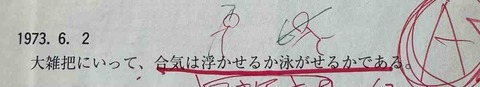 1973. 6. 2
大雑把にいって、合気は浮かせるか泳がせるかである。